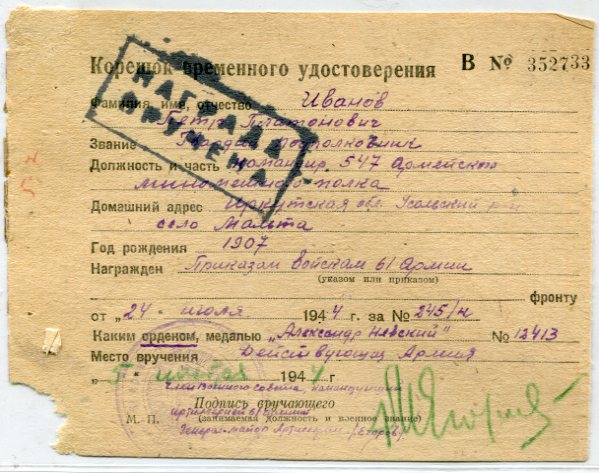 Корешок временного удостоверения В № 352733
НАГРАДА
ВРУЧЕНА
Фамилия, имя, отчество Иванов
Петр Платонович
Звание Гвардии Подполковник
Должность и часть Командир 547 Армейского
минометного полка
Домашний адрес Иркутская обл. Усольский р-н
село Мальта
Год рождения 1907
Награжден Приказом Войскам 61 Армии
(указом или приказом)
фронту
от „24" июля 1944 г. за № 245/н
Каким орденом, медалью „Александр Невский" № 12413
Место вручения Действующая Армия
„5" ноября 1944 г.
Член военного совета командующий
Подпись вручающего
артиллерией армии
М. П. (занимаемая должность и военное звание)
Генерал-майор Артиллерии (Егоров)